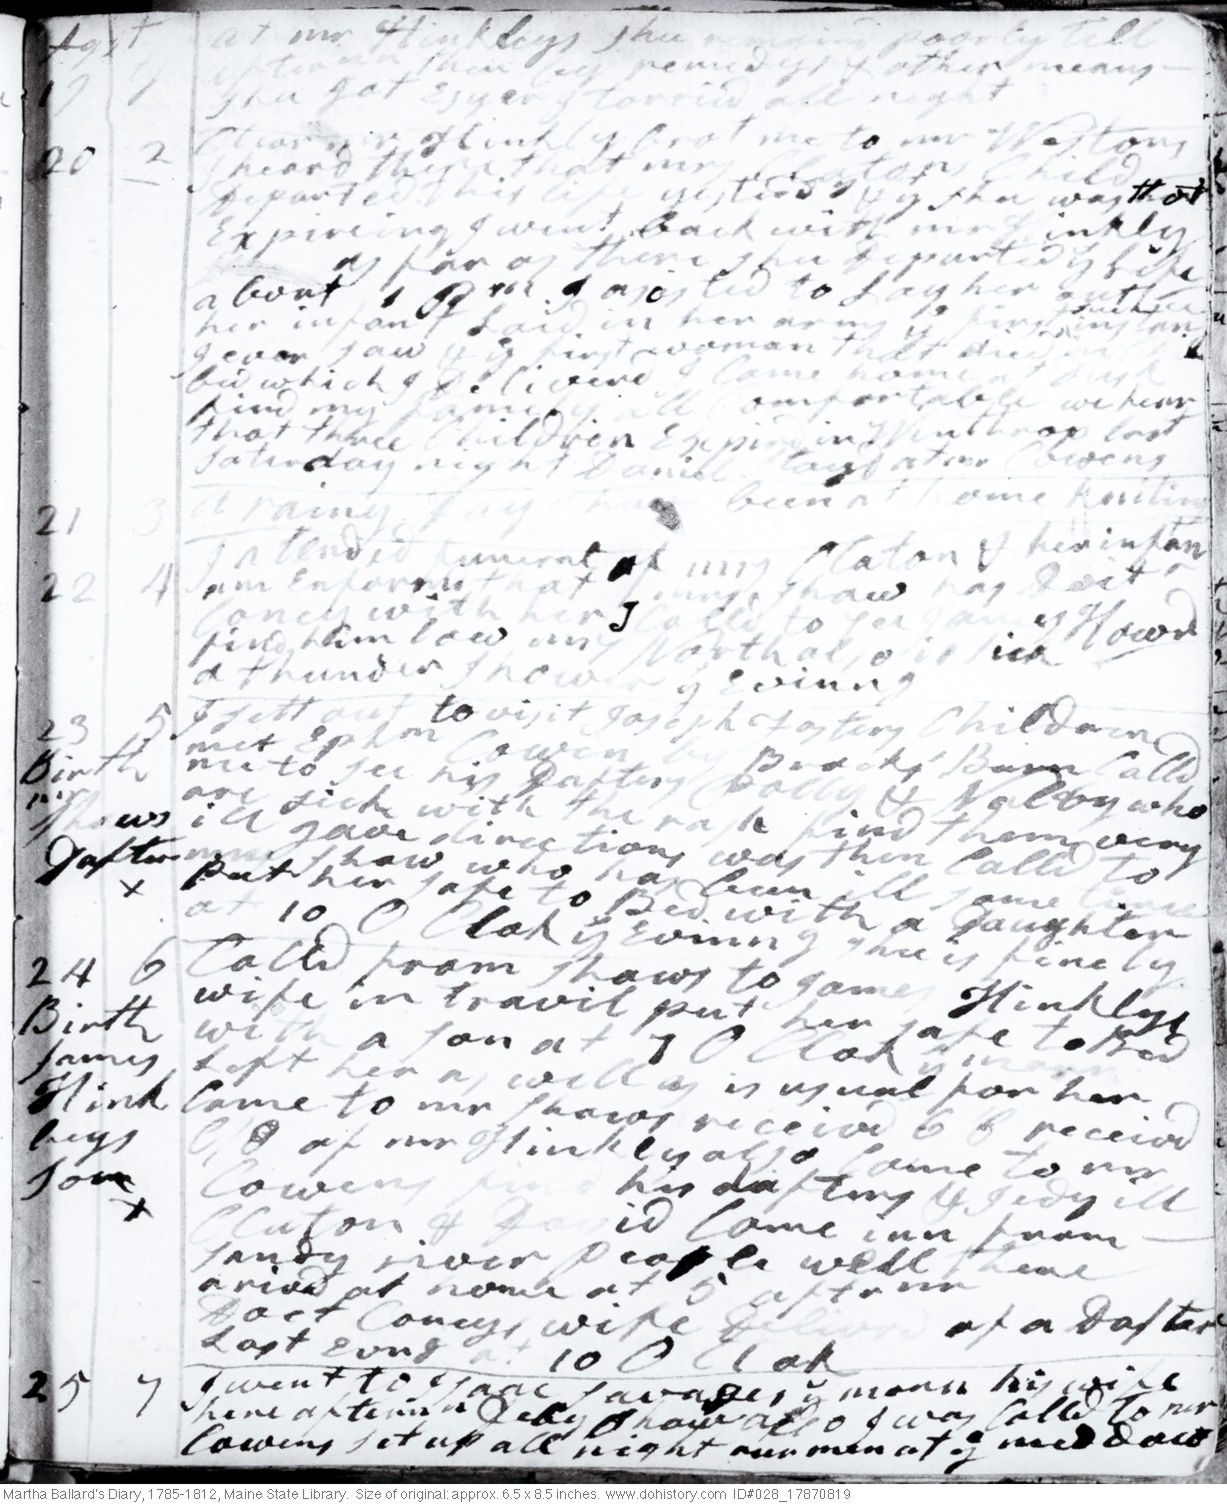 Agst at mr Hinkleys shee remain poorly till
aftern then by remedys & other means
19 1 shee got Esyer I tarried all night
20 2 Clear mr Hinkly brot me to mr Westons
I heard there that mrs Clatons Child
Departed this life yesterdy & yt shee was thot
Expireing I went back with mr Hinkly
as far as there shee departed ys life
about 1 Pm I asisted to Lay her out
her infant Laid in her arms ye first such instance
I ever saw & ye first woman that died in Child
bed which I Delivered I Came home at Dusk
find my family all Comfortable we hear
that three Children Expird in Winthrop last
Saterday night Daniel at mr Cowens
21 3 a rainy Day have been at home kniting
22 4 I atended funeral of mrs Claton & her infant
I am Enformd that mrs Shaw has Doct
Coney with her I Calld to see James Howd
find him low mrs North also is sick
a thunder Shower ys Evinng
23 5 I sett out to visit Joseph Fosters Children
met Ephm Cowen by Brooks' Barn Calld
Birth me to see his Dafters Polly & Nabby who
mr are sick with the rash find them very
Shaws ill gave directions was then Calld to
Dafter mrs Shaw who has been ill some time
x Put her safe to Bed with a Daughter
at 10 O Clok ys Evinng shee is finely
24 6 Calld from Shaws to James Hinklys
wife in travil put her safe to Bed
Birth with a son at 7 O Clok ys morn
James Left her as well as is usual for her
Hink Came to mr Shaws receivd 6 receivd
leys 6/8 of mr Hinkly also Came to mr
son Cowens find his dafters & Jedy ill
x Claton & David Come inn from
Sandy river People well there
arived at home at 5 aftrnn
Doct Coneys wife Delivrd of a Dafter
Last Evng at 10 O Clok
25 7 I went to Isaac Savages ys morn his wife
here afternn Polly Shaw also I was Calld to mr
Cowens set up all night our men at ye meddow